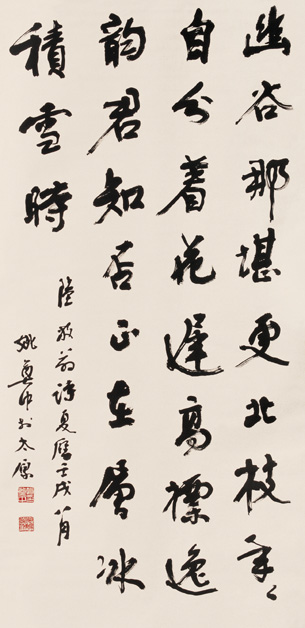 幽谷那堪更北枝年々
自分着花遲高標逸
韵君知否正在層冰
積雪時
陸放翁詩夏曆壬戌八月
姚奠中於太原